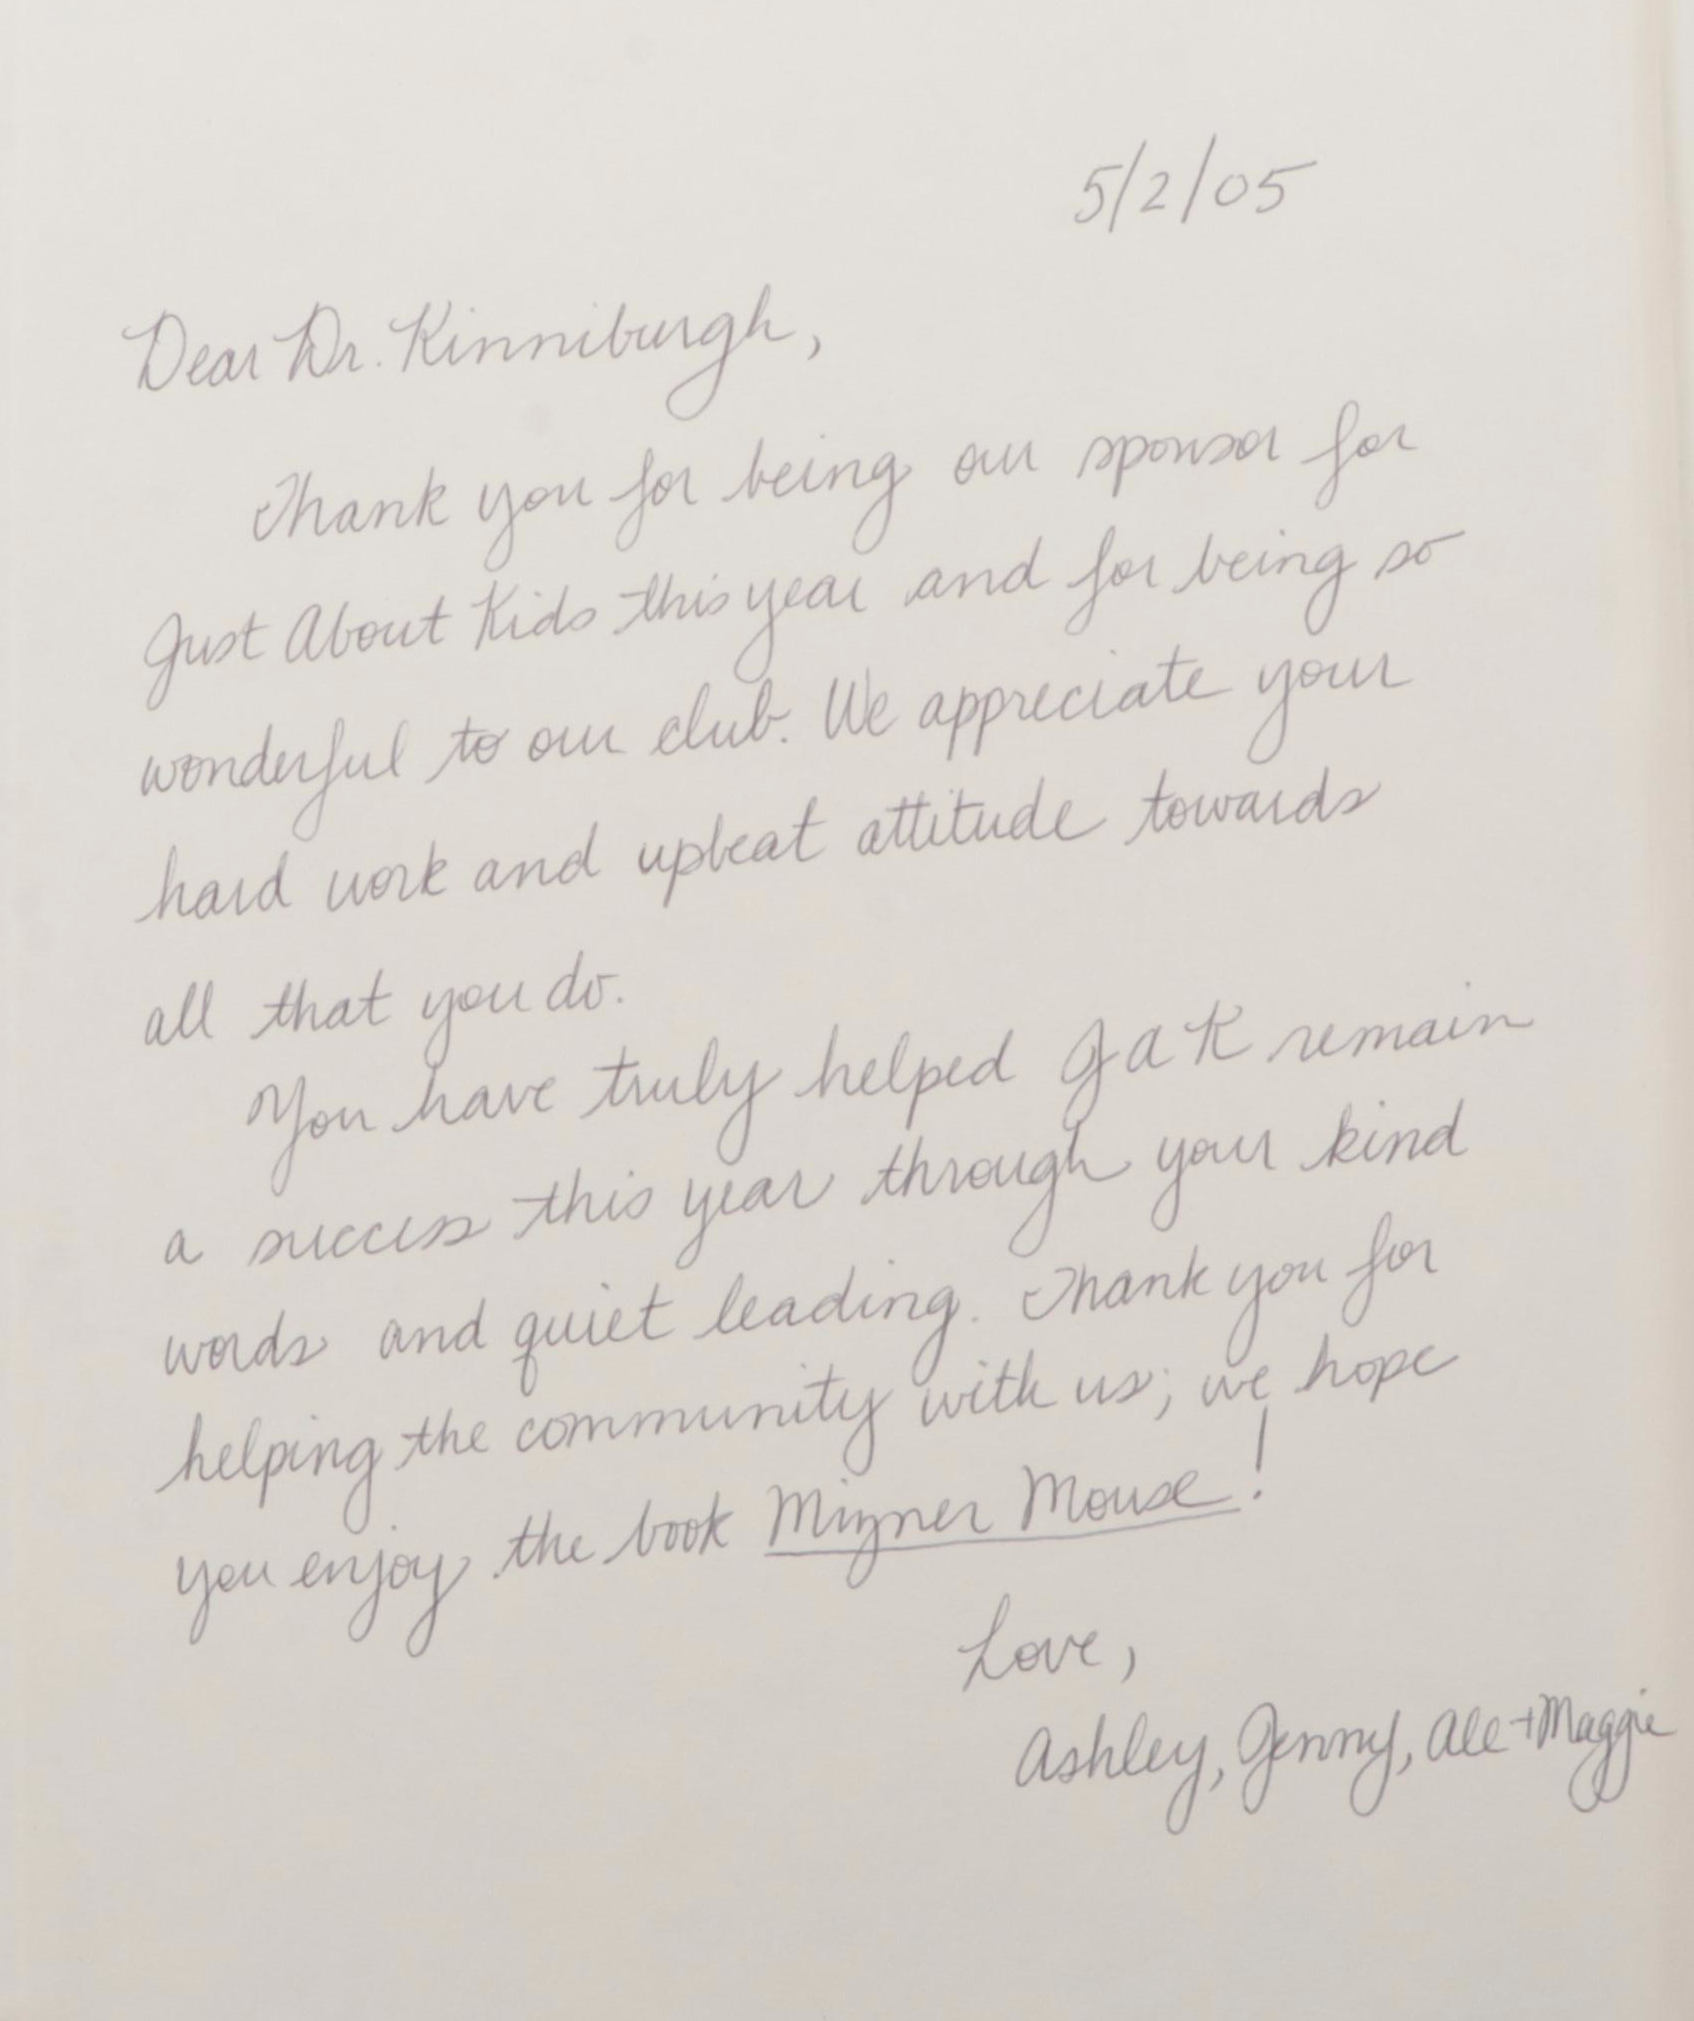 5/2/05
Dear Dr. Kinniburgh,
Thank you for being our sponsor for
Just About Kids this year and for being so
wonderful to our club. We appreciate your
hard work and upbeat attitude towards
all that you do.
You have truly helped JAK remain
a success this year through your kind
words and quiet leading. Thank you for
helping the community with us; we hope
you enjoy the book Mizner Mouse!
Love,
Ashley, Jenny, Ale + Maggie